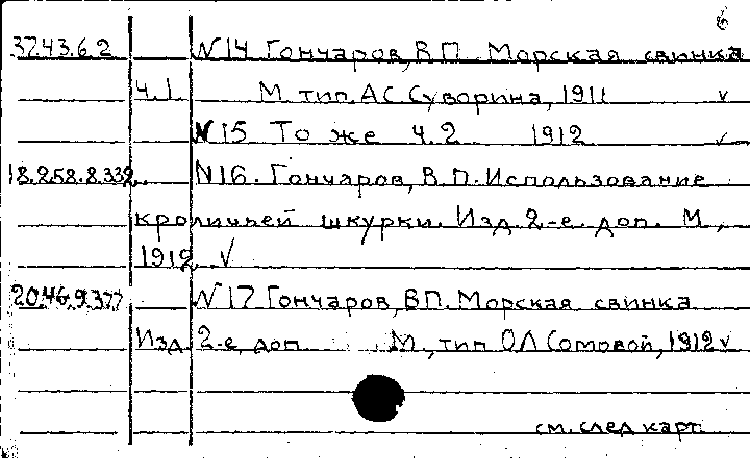 6
37.43.6.2 N14 Гончаров, В.П. Морская свинка
ч.1 М. тип. А.С. Суворина, 1911 ✓
N15 То же ч.2 1912 ✓
18.258.8.332. N16. Гончаров, В.П. Использование
кроличьей шкурки. Изд. 2-е. доп. М.,
1912 ✓
20.46.9.377 N17 Гончаров, В.П. Морская свинка
Изд. 2-е, доп М., тип ОЛ Сомовой, 1912 ✓
см. след карт.